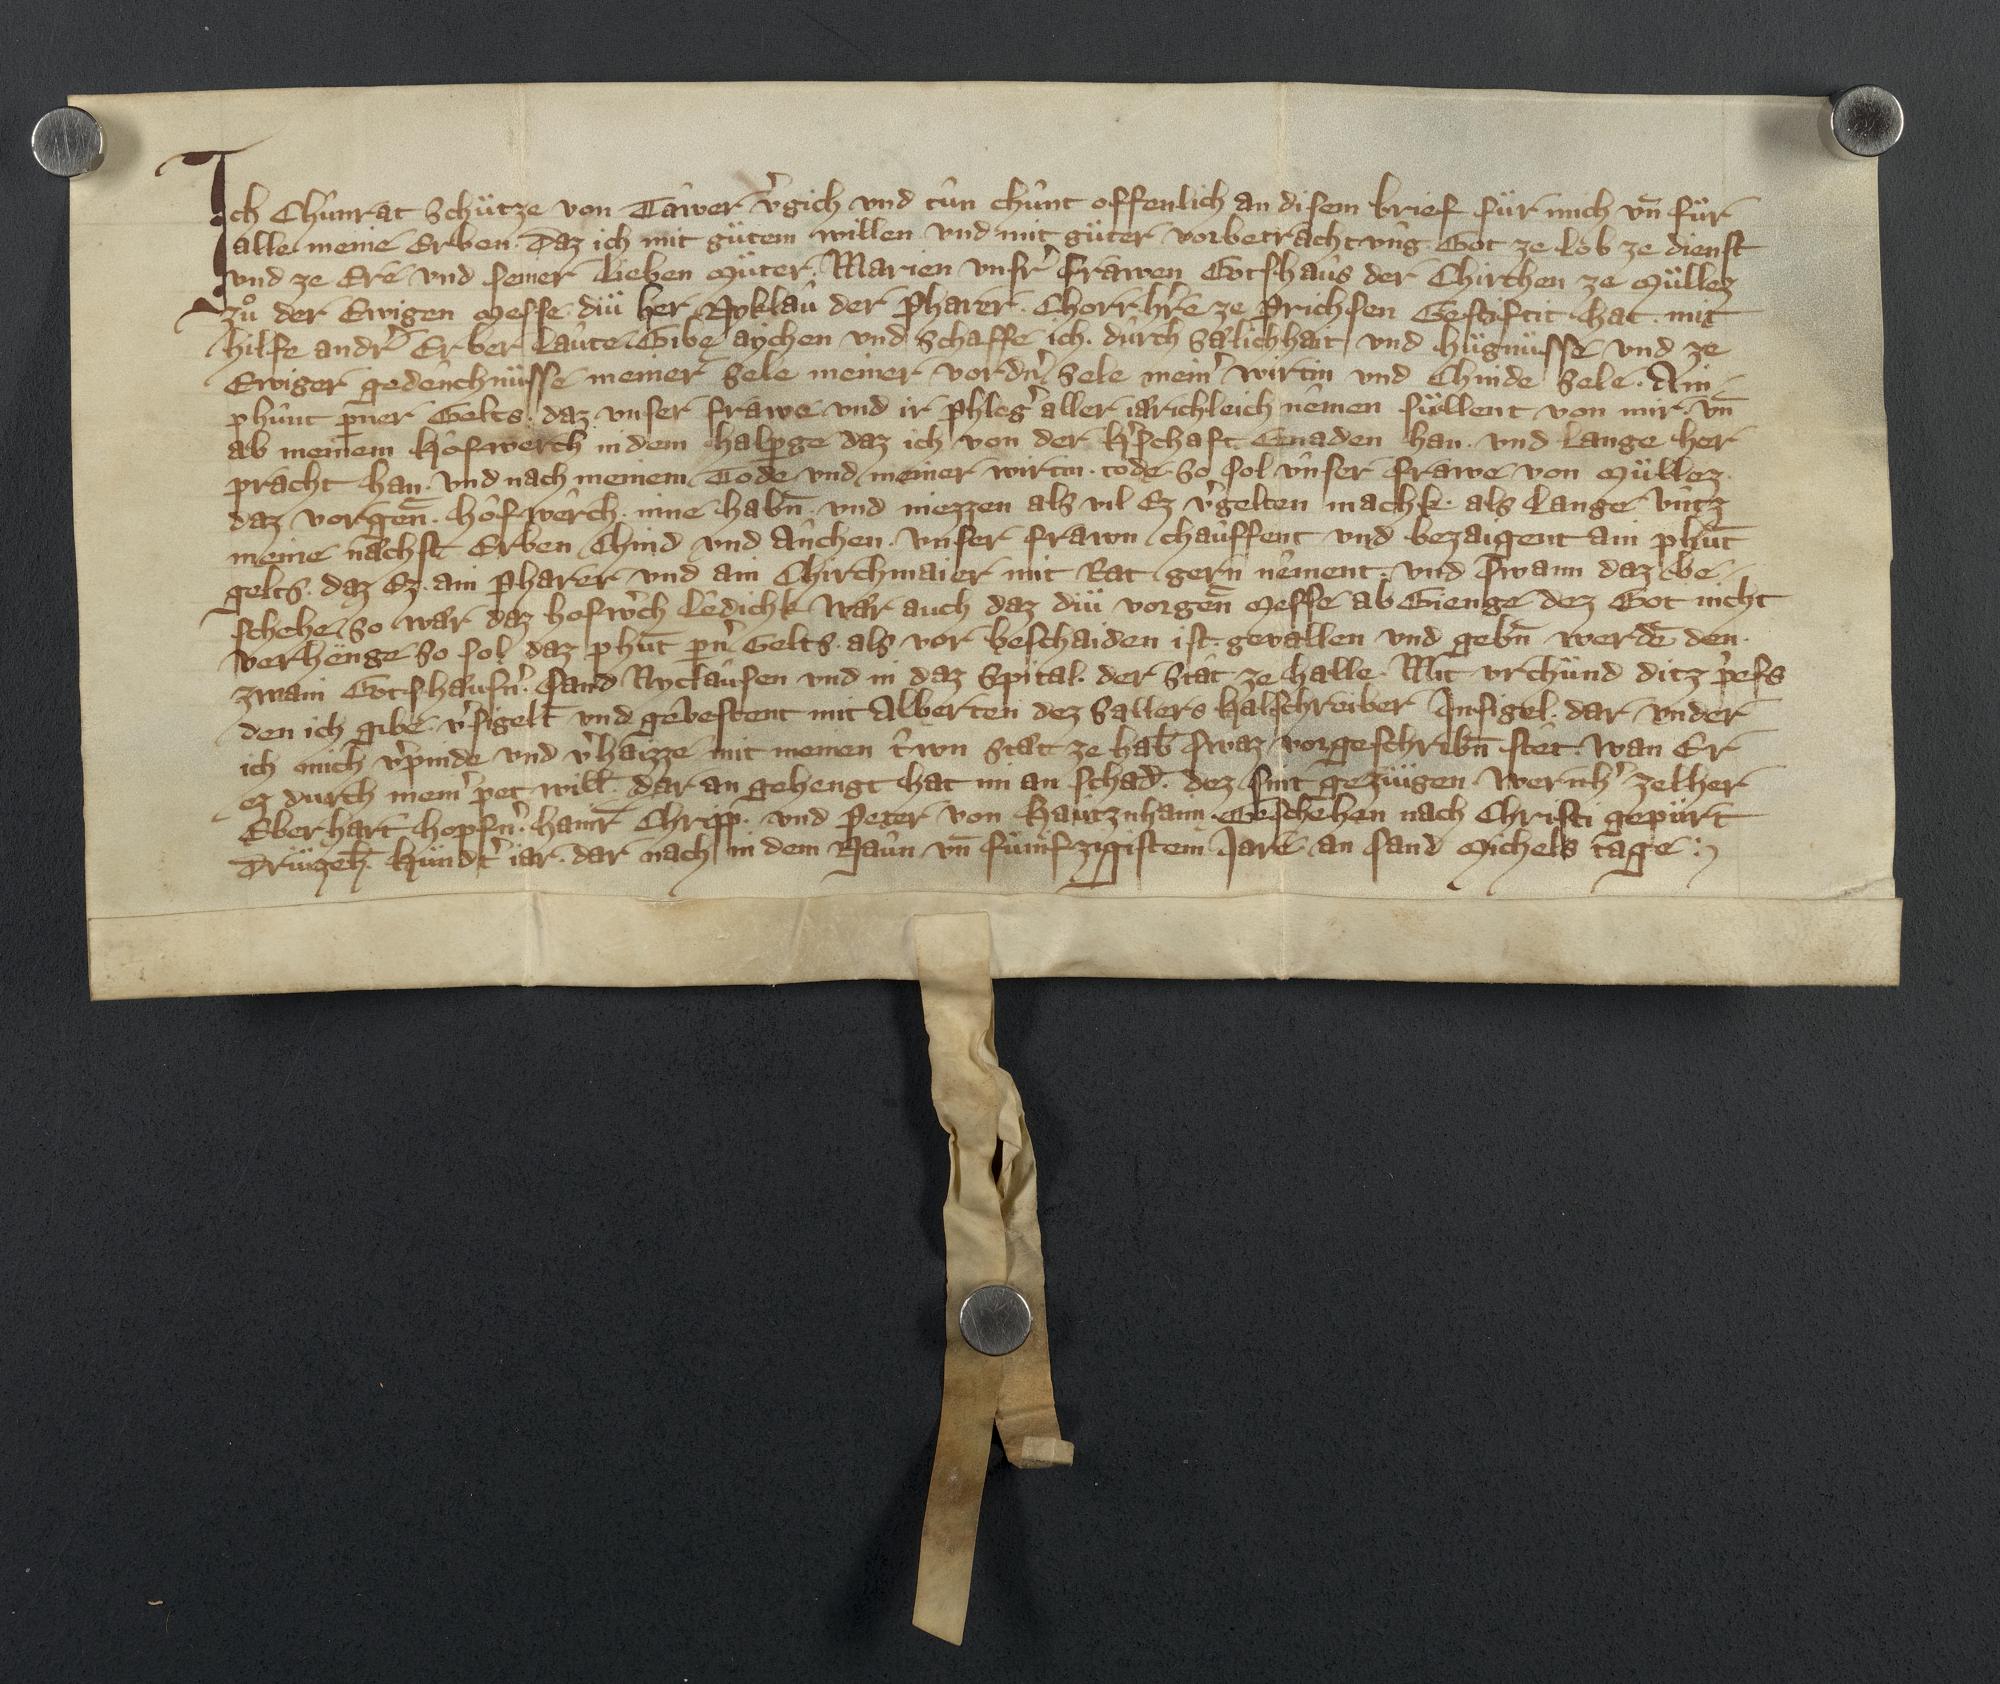 Ich Chůnrat Schütze von Tawer v͛gich vnd tůn chůnt offenlich an disem brief für mich vn̄ für
alle meine Erben. Daz ich mit gütem willen vnd mit güter vorbetrachtvng. Got ze lob ze dienst
vnd ze Ere vnd seiner lieben Můter. Marien vnsr͛ frawen Gotshaus der Chirchen ze Müllez
zů der Ewigen Messe. diü her Nyklau der Pharer. Chorrh͛re ze Prichsen Gestiftit hat. mit
hilfe andr͛ Erber laute. Gibe aychen vnd Schaffe ich. durch Sälichhait vnd hügnüsse vnd ze
Ewiger gedenchnüsse meiner Sele meiner vordn͛ Sele mein͛ wirtin vnd Chinde Sele. Ain
phunt p̄ner Gelts. daz vnser frawe vnd ir phleg͛ aller iärichleich nemen süllent von mir. vn̄
ab meinem hofwerch in dem halpge daz ich von der h͛schaft Gnaden han. vnd lange her
pracht han. vnd nach meinem Tode vnd meiner wirtin. tode. So sol vnser frawe von Müllez.
daz vorgen̄. hofwerch. inne habn̄. vnd niezzen als vil Ez v͛gelten machk. als lange vntz
meine nächst Erben Chind vnd Anchen. vnser frawn chauffent vnd bezaigent ain phūt
gelts. daz Ez. ain Pharer vnd ain Chirchmaier mit Rat gern nement. vnd Swann daz be-
schehe. So wär daz hofw͛ch ledichk. Wär auch daz diü vorgen̄ Messe ab Gienge dez Got nicht
verhenge. So sol daz phūt pn͛ Gelts. als vor beschaiden ist. gevallen vnd gebn̄ werdē den.
zwain Gotshäusn͛. Sand Nyclausen vnd in daz Spital. der Stat ze halle. Mit vrchund ditz p͛efs
den ich gibe. v͛sigelt vnd gevestent mit Alberten dez Sallers halschreiber Insigel. dar vnder
ich mich v͛pinde vnd v͛haizze mit meinen t͛wn Stät ze hab̄ Swaz vorgeschribn̄ stet. wan Er
ez durch mein͛ pet will̄. dar an gehengt hat im an schad̄. dez sint gezüigen Wernh͛ zelher
Eberhart hopfn͛. hainr̄ Chripp. vnd Peter von Hautznhaim. Geschehen nach Christi gepürt
Drüizeh̄. Hündt͛ iar. dar nach in dem Naun vn̄ fümfzigistem Jare an sand Michels tage :